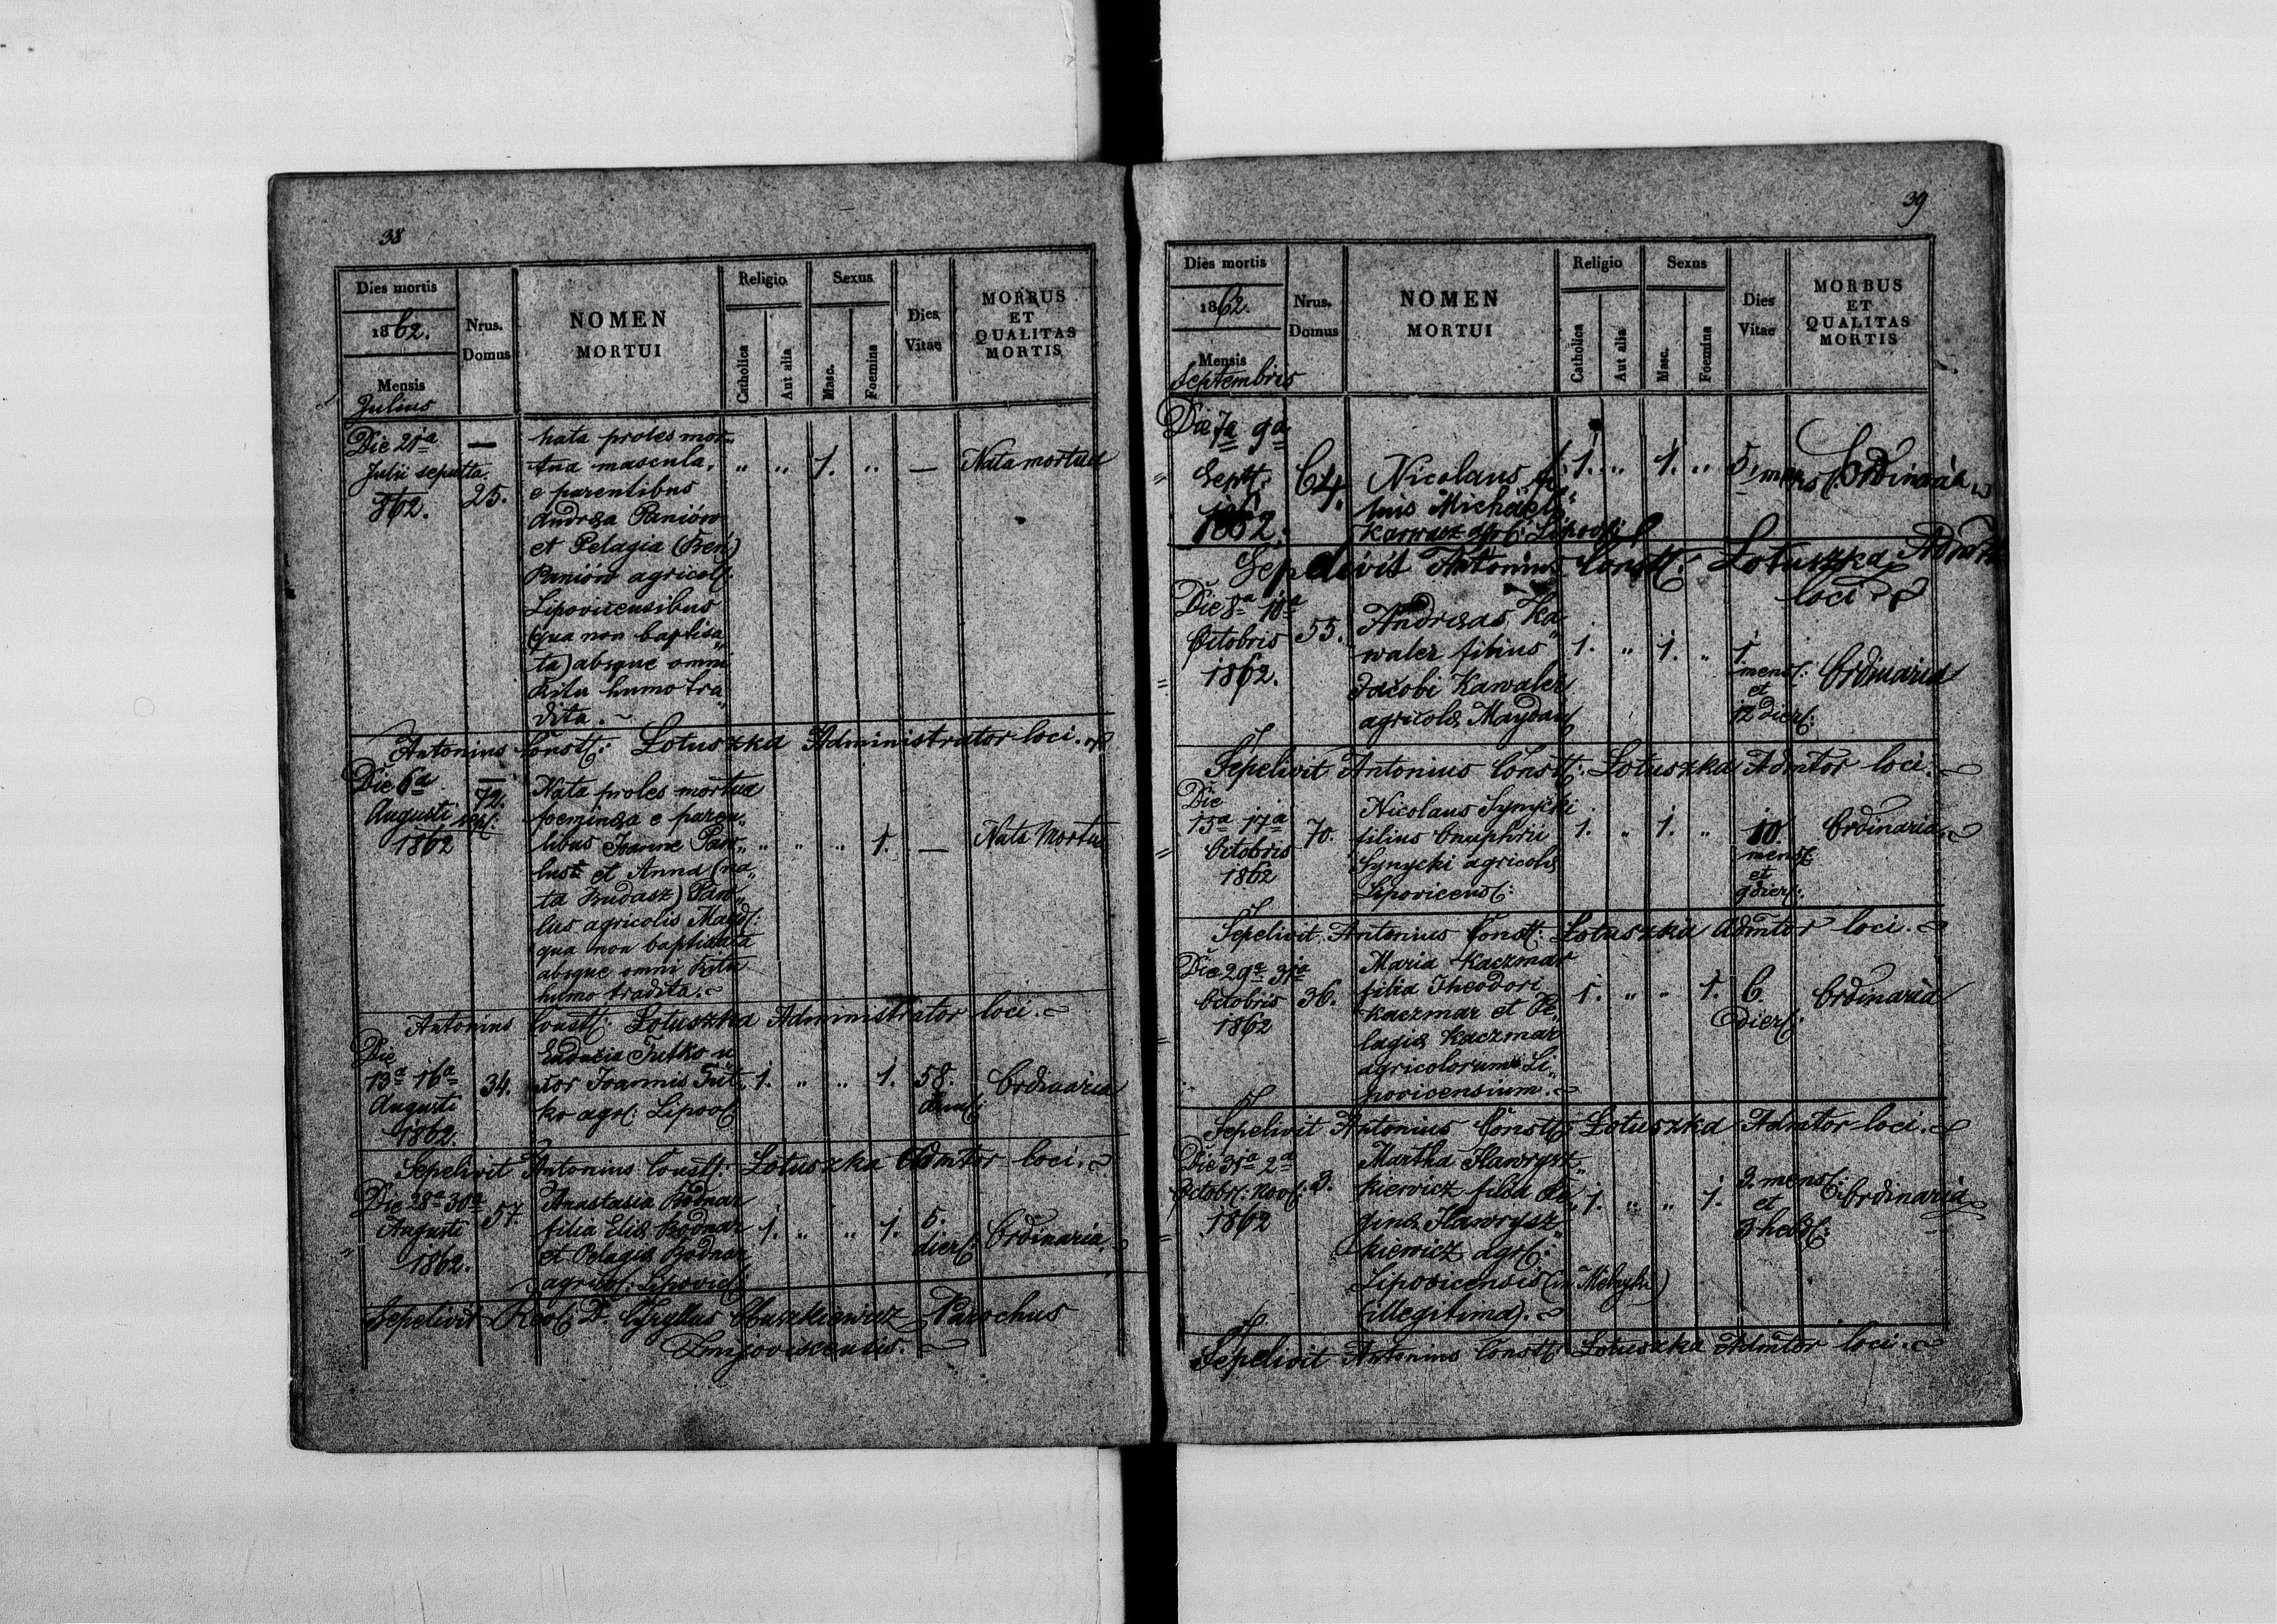 38
Dies mortis
1862.
Mensis
Julius
Nrus. Domus
NOMEN
MORTUI
Religio
Catholica
Aut alia
Sexus
Masc.
Foemina
Dies
Vitae
MORBUS
ET
QUALITAS
MORTIS
Die 21a
Julii sepulta
862.
—
25.
nata proles mor„
tua mascula,
e parentibus
Andrea Paniów
et Pelagia (Ben)
Paniów agricol:
Lipovicensibus
(qua non baptisa„
ta) absque omni
Ritu humo tra„
dita. ~
„ „ 1. „ — Nata mortua
Antonius Const: Lotuszka Administrator loci.
Die 6a
Augusti sep:
1862
—
72.
Nata proles mortua
foeminea e paren„
tibus Joanne Paw„
lus et Anna (na„
ta Budasz) Paw„
lus agricolis Mayd:
qua non baptisata
absque omni Ritu
humo tradita. ~
„ „ „ 1. — Nata Mortua
Antonius Const: Lotuszka Administrator loci. ~
Die
13a 16a
Augusti
1862.
34.
Eudocia Futko u„
xor Joannis Fut„
ko agr: Lipov:
1. „ „ 1. 58.
ann:
Ordinaria
Sepelivit Antonius Const: Lotuszka Admtor loci. ~
Die 28a 30a
Augusti
1862.
57.
Anastasia Bodnar
filia Eliæ Bodnar
et Pelagiæ Bodnar
agricol: Lipovic:
1. „ „ 1. 5.
dier:
Ordinaria.
Sepelivit Rev: D. Cyryllus Parochus
39
Dies mortis
1862.
Mensis
Septembris
Nrus. Domus
NOMEN
MORTUI
Religio
Catholica
Aut alia
Sexus
Masc.
Foemina
Dies
Vitae
MORBUS
ET
QUALITAS
MORTIS
Die 7a 9a
Sept:
1862.
64.
Nicolaus fi„
lius Michaelis
Karwasz agr: Lipov:
1. „ 1. „ 5. mens: Ordinaria
Sepelivit Antonius Const: Lotuszka Admtor
loci
Die 8a 10a
Octobris
1862.
55.
Andreas Ka„
waler filius
Jacobi Kawaler
agricolæ Maydan:
1. „ 1. „ 1.
mens:
et
12 dier:
Ordinaria
Sepelivit Antonius Const: Lotuszka Admtor loci. ~
Die
15a 17a
Octobris
1862
70.
Nicolaus Synycki
filius Onuphrii
Synycki agricolæ
Lipovicens:
1. „ 1. „ 10.
mens:
et
9 dier:
Ordinaria ~
Sepelivit Antonius Const: Lotuszka Admtor loci. ~
Die 29a 31a
Octobris
1862
36.
Maria Kaczmar
filia Theodori
Kaczmar et Pe„
lagiæ Kaczmar
agricolorum Li„
povicensium. ~
1. „ „ 1. 6.
dier:
Ordinaria
Sepelivit Antonius Const: Lotuszka Admtor loci. ~
Die 31a 2a
Octobr: Nov:
1862
3.
Martha Hawrysz„
kiewicz filia Re„
ginæ Hawrysz„
kiewicz agr:
Lipovicensis
(illegitima). ~
1. „ „ 1. 2. mens:
et
3 hebd:
Ordinaria
Sepelivit Antonius Const: Lotuszka Admtor loci. ~